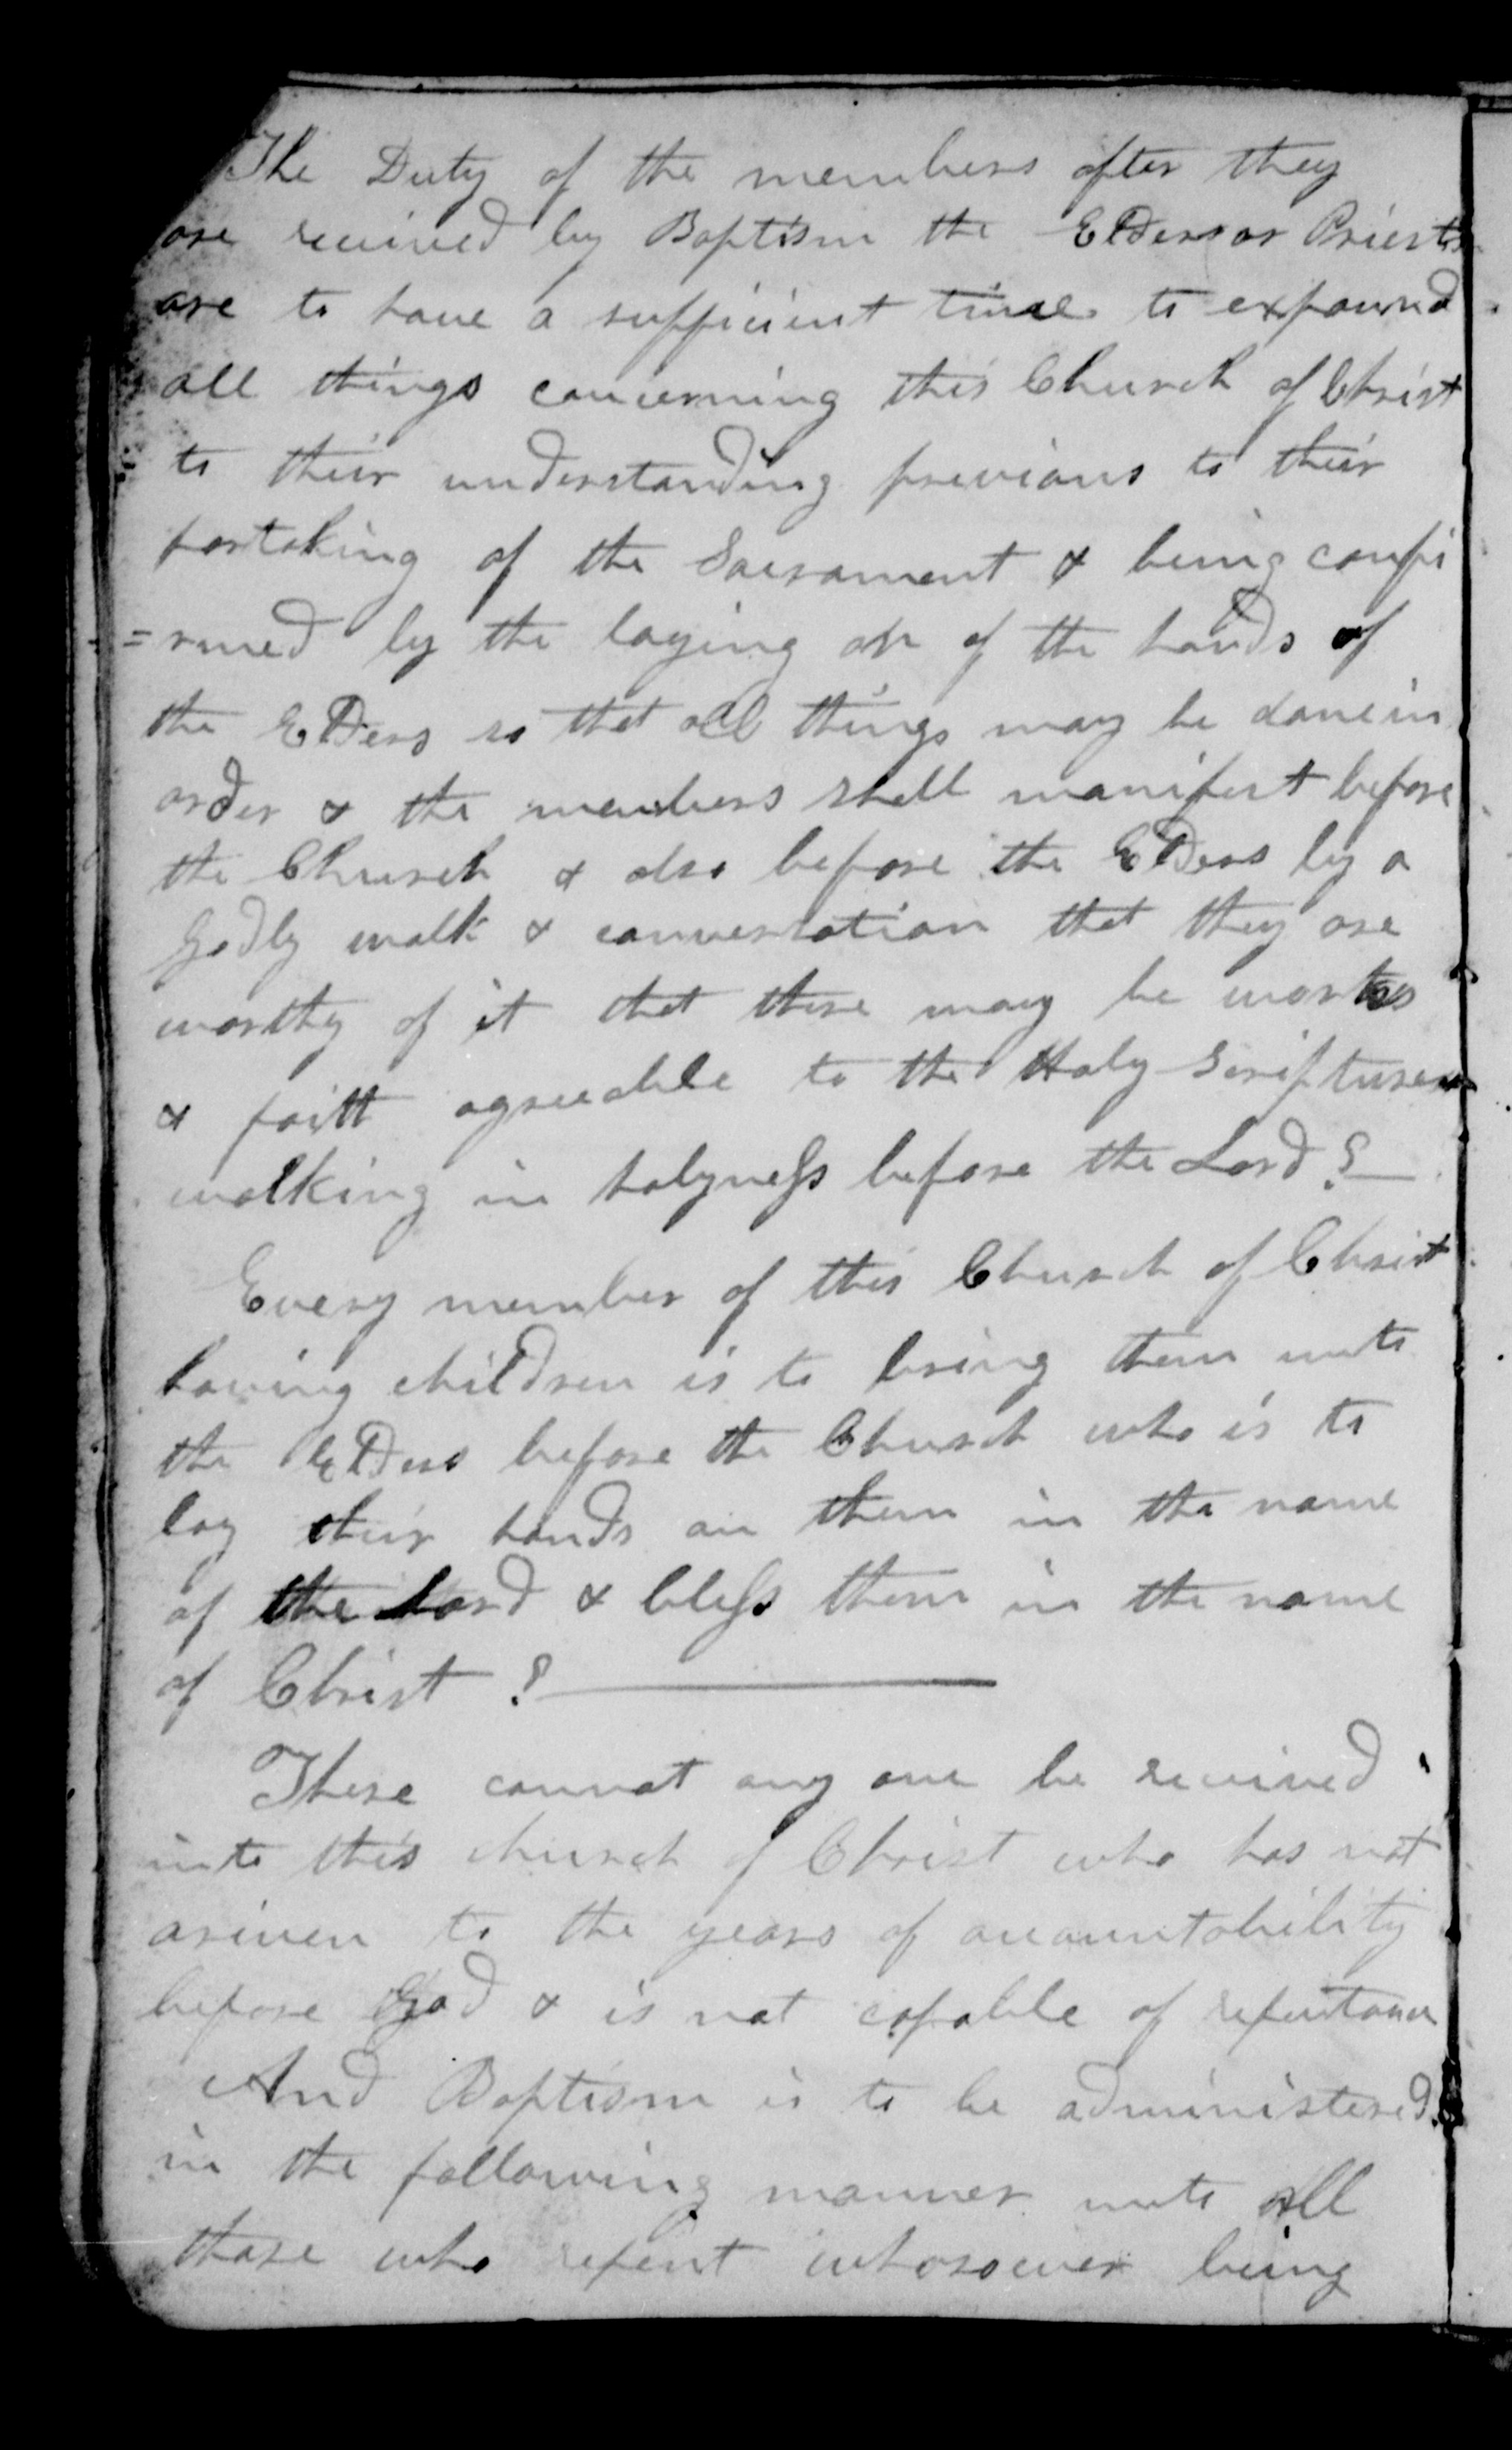 The Duty of the members after they
are received by Baptism the Elders or Priests
are to have a sufficient time to expound
all things concerning this Church of Christ
to their understanding previous to their
partaking of the Sacrament & being confi
=rmed by the laying on of the hands of
the Elders so that all things may be done in
order & the members shall manifest before
the Church & also before the Elders by a
Godly walk & conversation that they are
worthy of it that there may be works
& faith agreeable to the Holy Scriptures
walking in holyneſs before the Lord ?—
Every member of this Church of Christ
having children is to bring them unto
the Elders before the Church who is to
lay their hands on them in the name
of the Lord & bleſs them in the name
of Christ ?—
There cannot any one be received
into this church of Christ who has not
ariven to the years of accountability
before God & is not capable of repentance
And Baptism is to be administered
in the following manner unto all
those who repent whosoever being